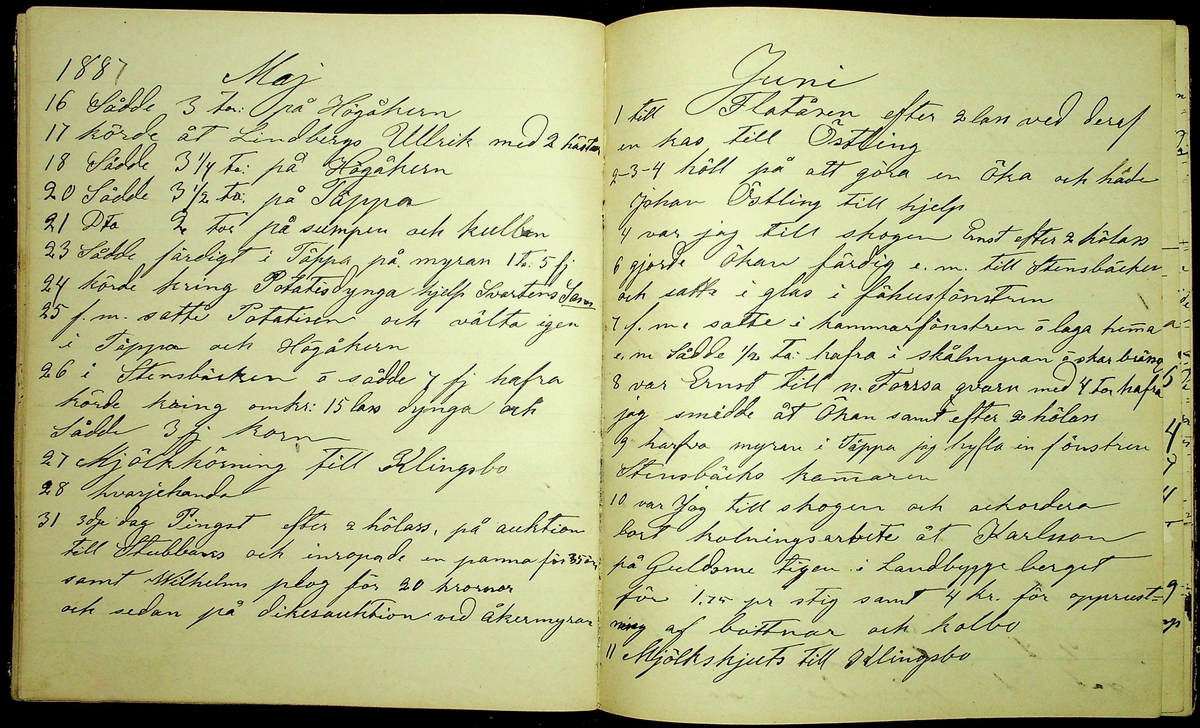 1887 Maj
16 Sådde 3 tar: på Högåkern
17 körde åt Lindbergs Ullrik med 2 hästar
18 Sådde 3 1/4 ta: på Högåkern
20 Sådde 3 1/2 ta: på Täppa
21 Dto 2 tor på sumpen och kullen
23 Sådde färdigt i Täppa på myran 1 ta: 5 fj
24 körde kring Potatisdynga hjelp Svartens
25 f.m. satte Potatisen och välta igen
i Täppa och Högåkern
26 i Stensbäcken o sådde 7 fj hafra
körde kring omkr: 15 lass dynga och
Sådde 3 fj korn
27 Mjölkkörning till Klingsbo
28 hvarjehanda
31 3dje dag Pingst efter 2 hölass, på auktion
till Stubbans och inropade en panna för 35 öre
samt Wilhelms plog för 20 kronor
och sedan på dikesauktion ved åkermyran
Juni
1 till Flatåsen efter 2 lass ved deraf
en kas till Östling
2-3-4 höll på att göra en Öka och hade
Johan Östling till hjelp
4 var jag till skogen Ernst efter 2 hölass
6 gjorde Ökan färdig e.m. till Stensbäcken
och satte i glas i fähusfönstren
7 f.m: satte i kammarfönstren o laga hemma
e.m Sådde 1/2 ta: hafra i skålmyran o skar
8 var Ernst till n. Torrsa qvarn med 4 tor hafra
jag smidde åt Ökan samt efter 2 hölass
9 harfva myran i Täppa jag hyfla in fönstren
Stensbäcks kamaren
10 var Jag till skogen och ackordera
bort kolningsarbete åt Karlsson
på Guldsme tigen i Landbygge berget
för 1.75 pr stig samt 4 kr. för upprust-
ning af bottnar och kolbo
11 Mjölkskjuts till Klingsbo